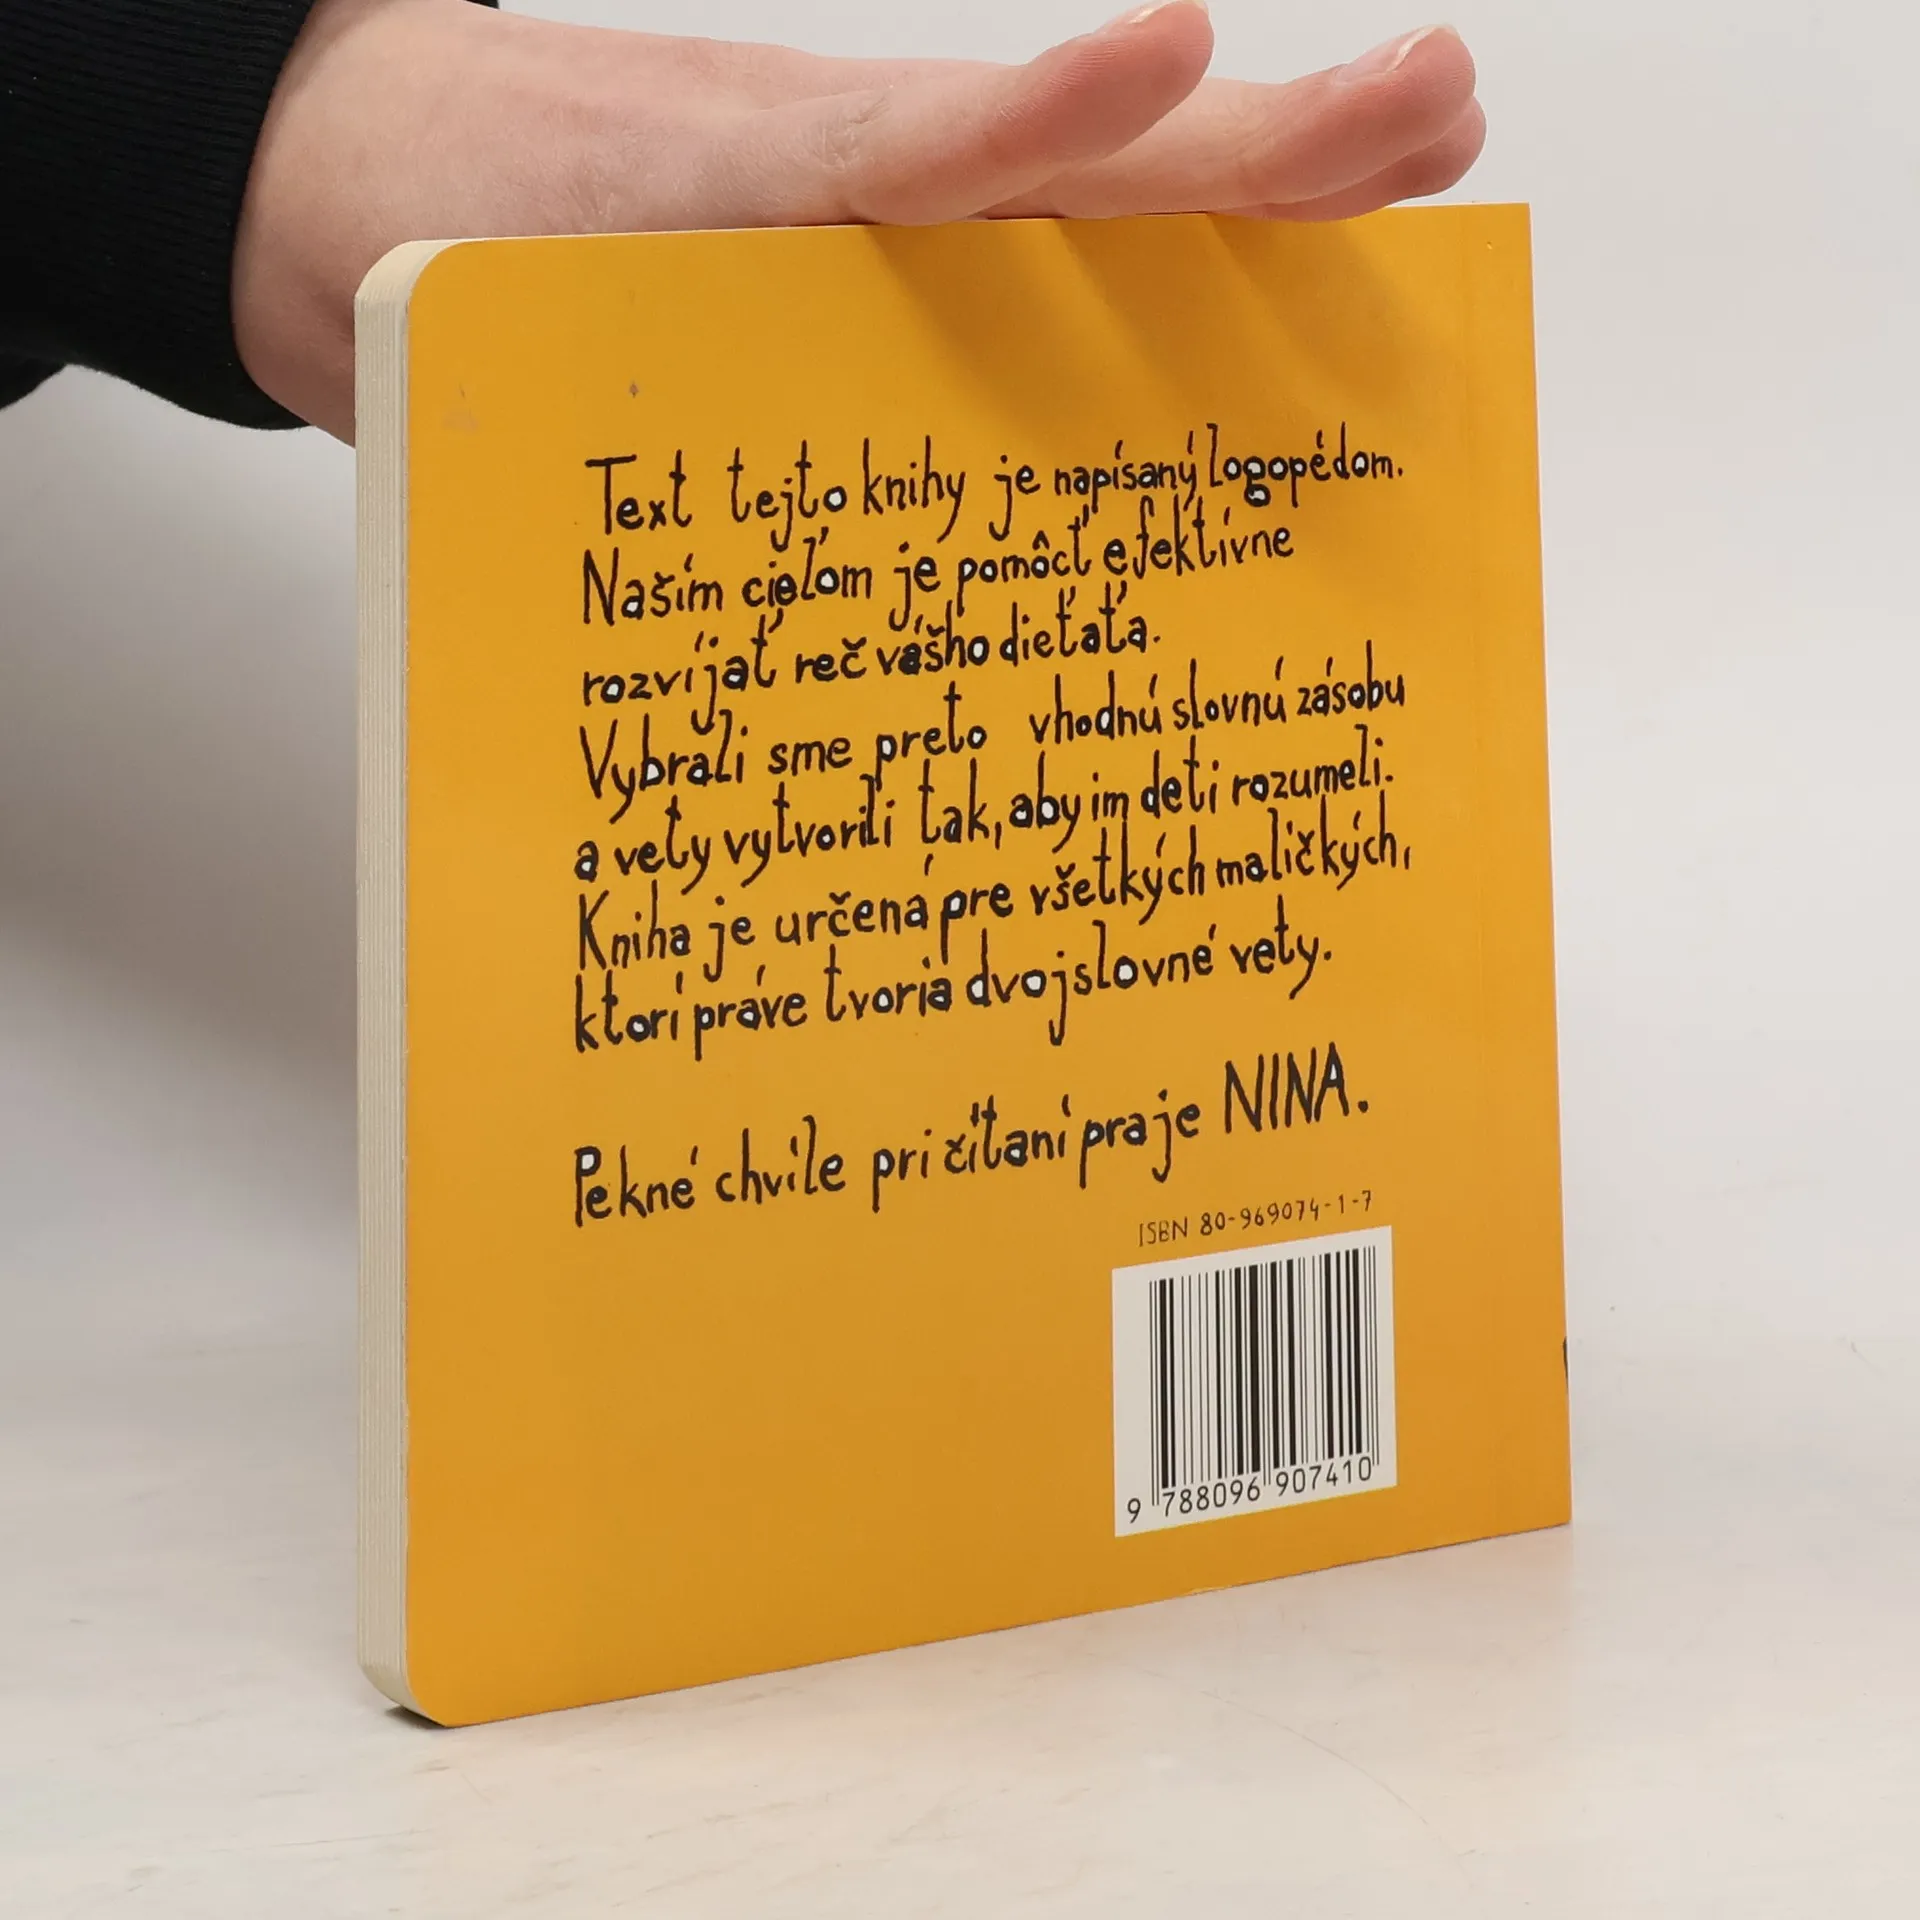 Text tejto knihy je napísaný logopédom.
Našim cieľom je pomôcť efektívne
rozvíjať reč vášho dieťaťa.
Vybrali sme preto vhodnú slovnú zásobu
a vety vytvorili tak, aby im deti rozumeli.
Kniha je určená pre všetkých maličkých,
ktorí práve tvoria dvojslovné vety.
Pekné chvíle pri čítaní praje NINA.
ISBN 80-969074-1-7
9 788096 907410